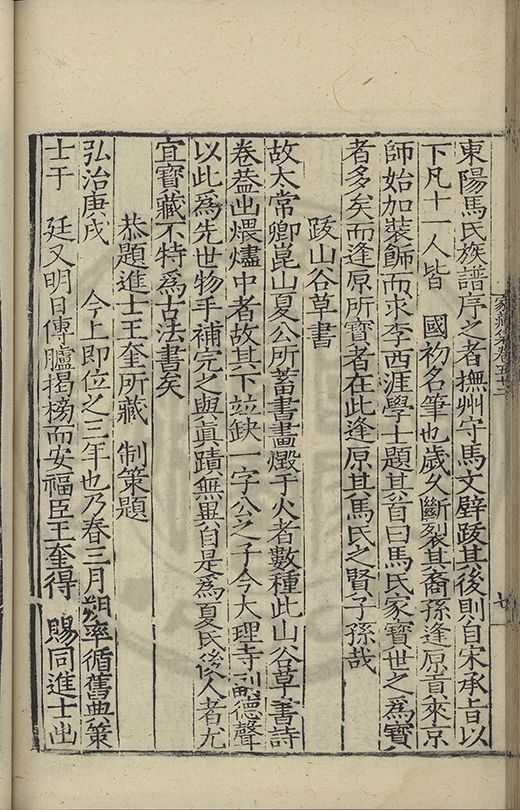 東陽馬氏族譜序之者撫州守馬文璧䟦其後則自宋承旨以
下凡十一人皆　國初名筆也歲久斷裂其裔孫逢原貢來京
師始加裝飾而求李西涯學士題其首曰馬氏家寶世之爲寶
者多矣而逢原所寶者在此逢原其馬氏之賢子孫哉
䟦山谷草書
故太常卿崑山夏公所蓄書畫燬于火者數種此山谷草書詩
卷葢出煨燼中者故其下竝缺一字公之子今大理寺副德聲
以此爲先世物手補完之與眞蹟無異自是爲夏氏後人者尤
宜寶藏不特爲古法書矣
恭題進士王奎所藏　制策題
弘治庚戌　今上即位之三年也乃春三月朔率循舊典策
士于　廷又明日傳臚揭榜而安福臣王奎得　賜同進士出
家藏集卷五十二
廿